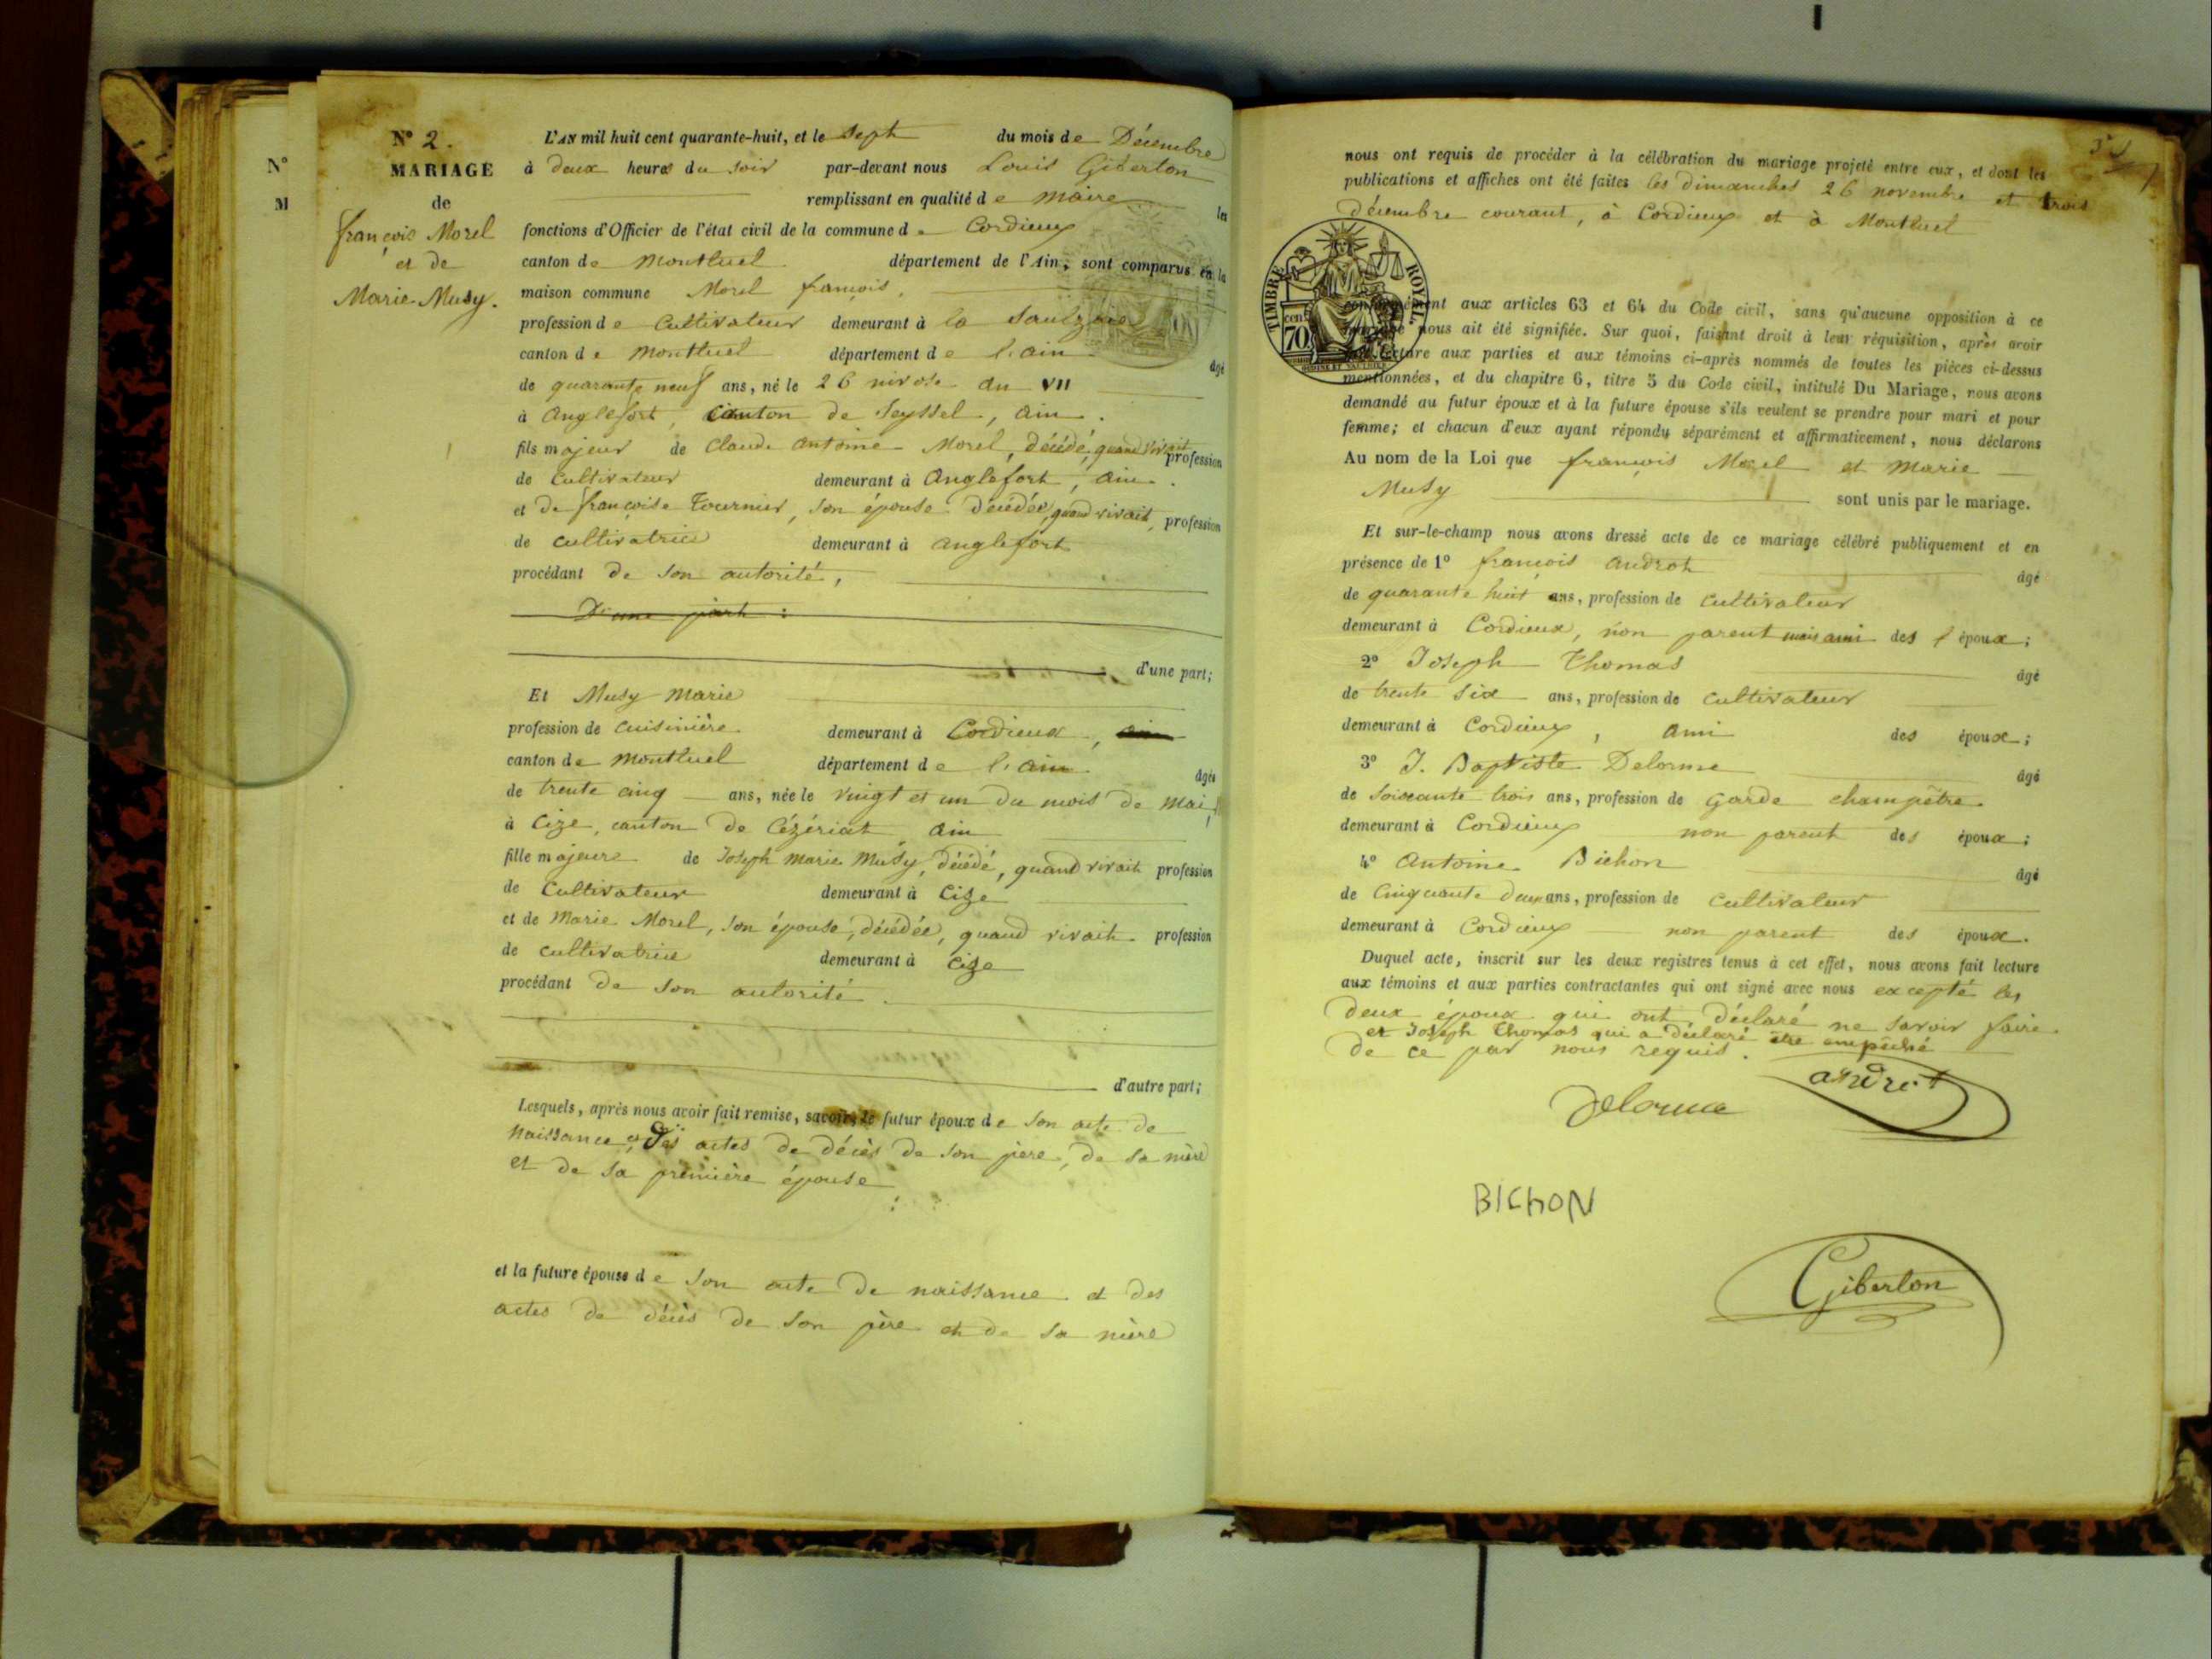 N° 2.
MARIAGE
de
françois Morel
et de
Marie Musy.
N°
M
L'AN mil huit cent quarante-huit, et le sept du mois de Décembre
à deux heures du soir par-devant nous Louis Giberton
remplissant en qualité de maire les
fonctions d'Officier de l'état civil de la commune de Cordieux
canton de Montluel département de l'Ain, sont comparus en la
maison commune Morel françois,
profession de Cultivateur demeurant à la
canton de Montluel département de l'ain âgé
de quarante neuf ans, né le 26 nivose an VII
à Anglefort, canton de Seyssel, Ain.
fils majeur de Claude Antoine Morel, décédé, quand vivait profession
de Cultivateur demeurant à Anglefort, Ain.
et de françoise Tournier, son épouse décédée, quand vivait, profession
de cultivatrice demeurant à Anglefort
procédant de son autorité,
D'une part :
d'une part;
Et Musy Marie
profession de Cuisinière demeurant à Cordieux, ain
canton de Montluel département de l'ain âgée
de trente cinq ans, née le vingt et un du mois de Mai,
à Cize, canton de Cézériat ain
fille majeure de Joseph Marie Musy, décédé, quand vivait profession
de Cultivateur demeurant à Cize
et de Marie Morel, son épouse, décédée, quand vivait profession
de cultivatrice demeurant à Cize
procédant de son autorité.
d'autre part;
Lesquels, après nous avoir fait remise, savoir, le futur époux de son acte de
naissance, et des actes de décès de son père, de sa mère
et de sa première épouse
et la future épouse de son acte de naissance et des
actes de décès de son père et de sa mère
nous ont requis de procéder à la célébration du mariage projeté entre eux, et dont les
publications et affiches ont été faites les dimanches 26 novembre et trois
décembre courant, à Cordieux et à Montluel
TIMBRE ROYAL
70 cen
conformément aux articles 63 et 64 du Code civil, sans qu'aucune opposition à ce
mariage nous ait été signifiée. Sur quoi, faisant droit à leur réquisition, après avoir
fait lecture aux parties et aux témoins ci-après nommés de toutes les pièces ci-dessus
mentionnées, et du chapitre 6, titre 5 du Code civil, intitulé Du Mariage, nous avons
demandé au futur époux et à la future épouse s'ils veulent se prendre pour mari et pour
femme; et chacun d'eux ayant répondu séparément et affirmativement, nous déclarons
Au nom de la Loi que françois Morel et Marie
Musy sont unis par le mariage.
Et sur-le-champ nous avons dressé acte de ce mariage célébré publiquement et en
présence de 1° françois Androt âgé
de quarante huit ans, profession de Cultivateur
demeurant à Cordieux, non parent mais ami des époux;
2° Joseph Thomas âgé
de trente six ans, profession de Cultivateur
demeurant à Cordieux, ami des époux;
3° J. Baptiste Delorme âgé
de soixante trois ans, profession de Garde champêtre
demeurant à Cordieux non parent des époux;
4° Antoine Bichon âgé
de Cinquante deux ans, profession de Cultivateur
demeurant à Cordieux non parent des époux.
Duquel acte, inscrit sur les deux registres tenus à cet effet, nous avons fait lecture
aux témoins et aux parties contractantes qui ont signé avec nous excepté les
deux époux qui ont déclaré ne savoir faire
et Joseph Thomas qui a déclaré être empêché
de ce par nous requis.
androt
Delorme
BIChON
Giberton